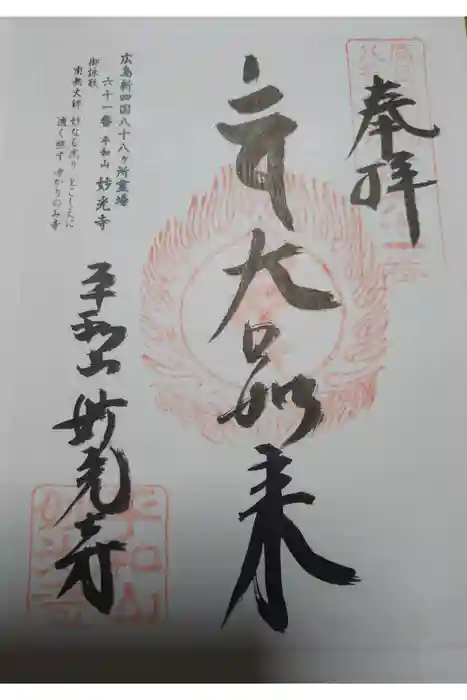 奉拝
大日如来
広島新四国八十八ヶ所霊場
六十一番 平和山 妙光寺
御詠歌
南無大師 妙なる光り とこしえに
遍く照す ゆかりのみ寺
平和山 妙光寺
平和山
妙光寺